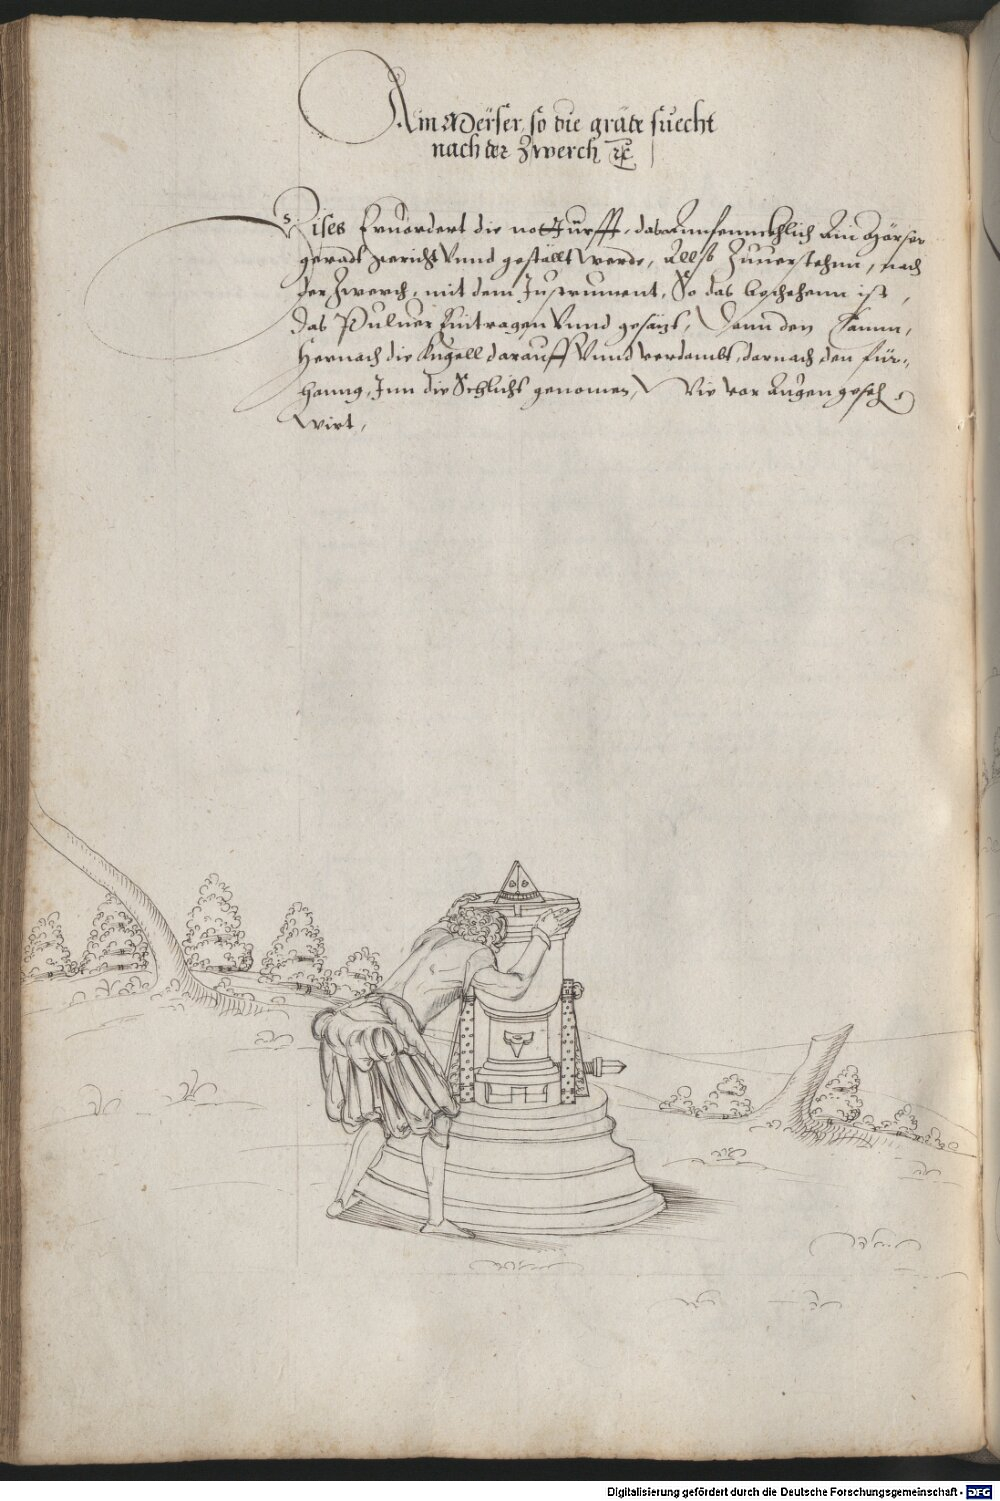 Ain Mërser, so die gräde suecht
nach der Zwerch ꝛc
Dises Ervordert die notturfft, das Annfennckhlich Ain Mörser
geradt gericht Vnnd geställt werde, Allß Zuuerstehnn, nach
der Zwerch, mit dem Instrument, So das beschehenn ist,
das Puluer Eintragen Vnnd gesäzt, Dann den Damm,
Hernach die Kugell darauff Vnnd verdambt, darnach den für-,
hanng, Inn die Schlicht genomen, Wie vor Augen geseh
wirt,
Digitalisierung gefördert durch die Deutsche Forschungsgemeinschaft - DFG